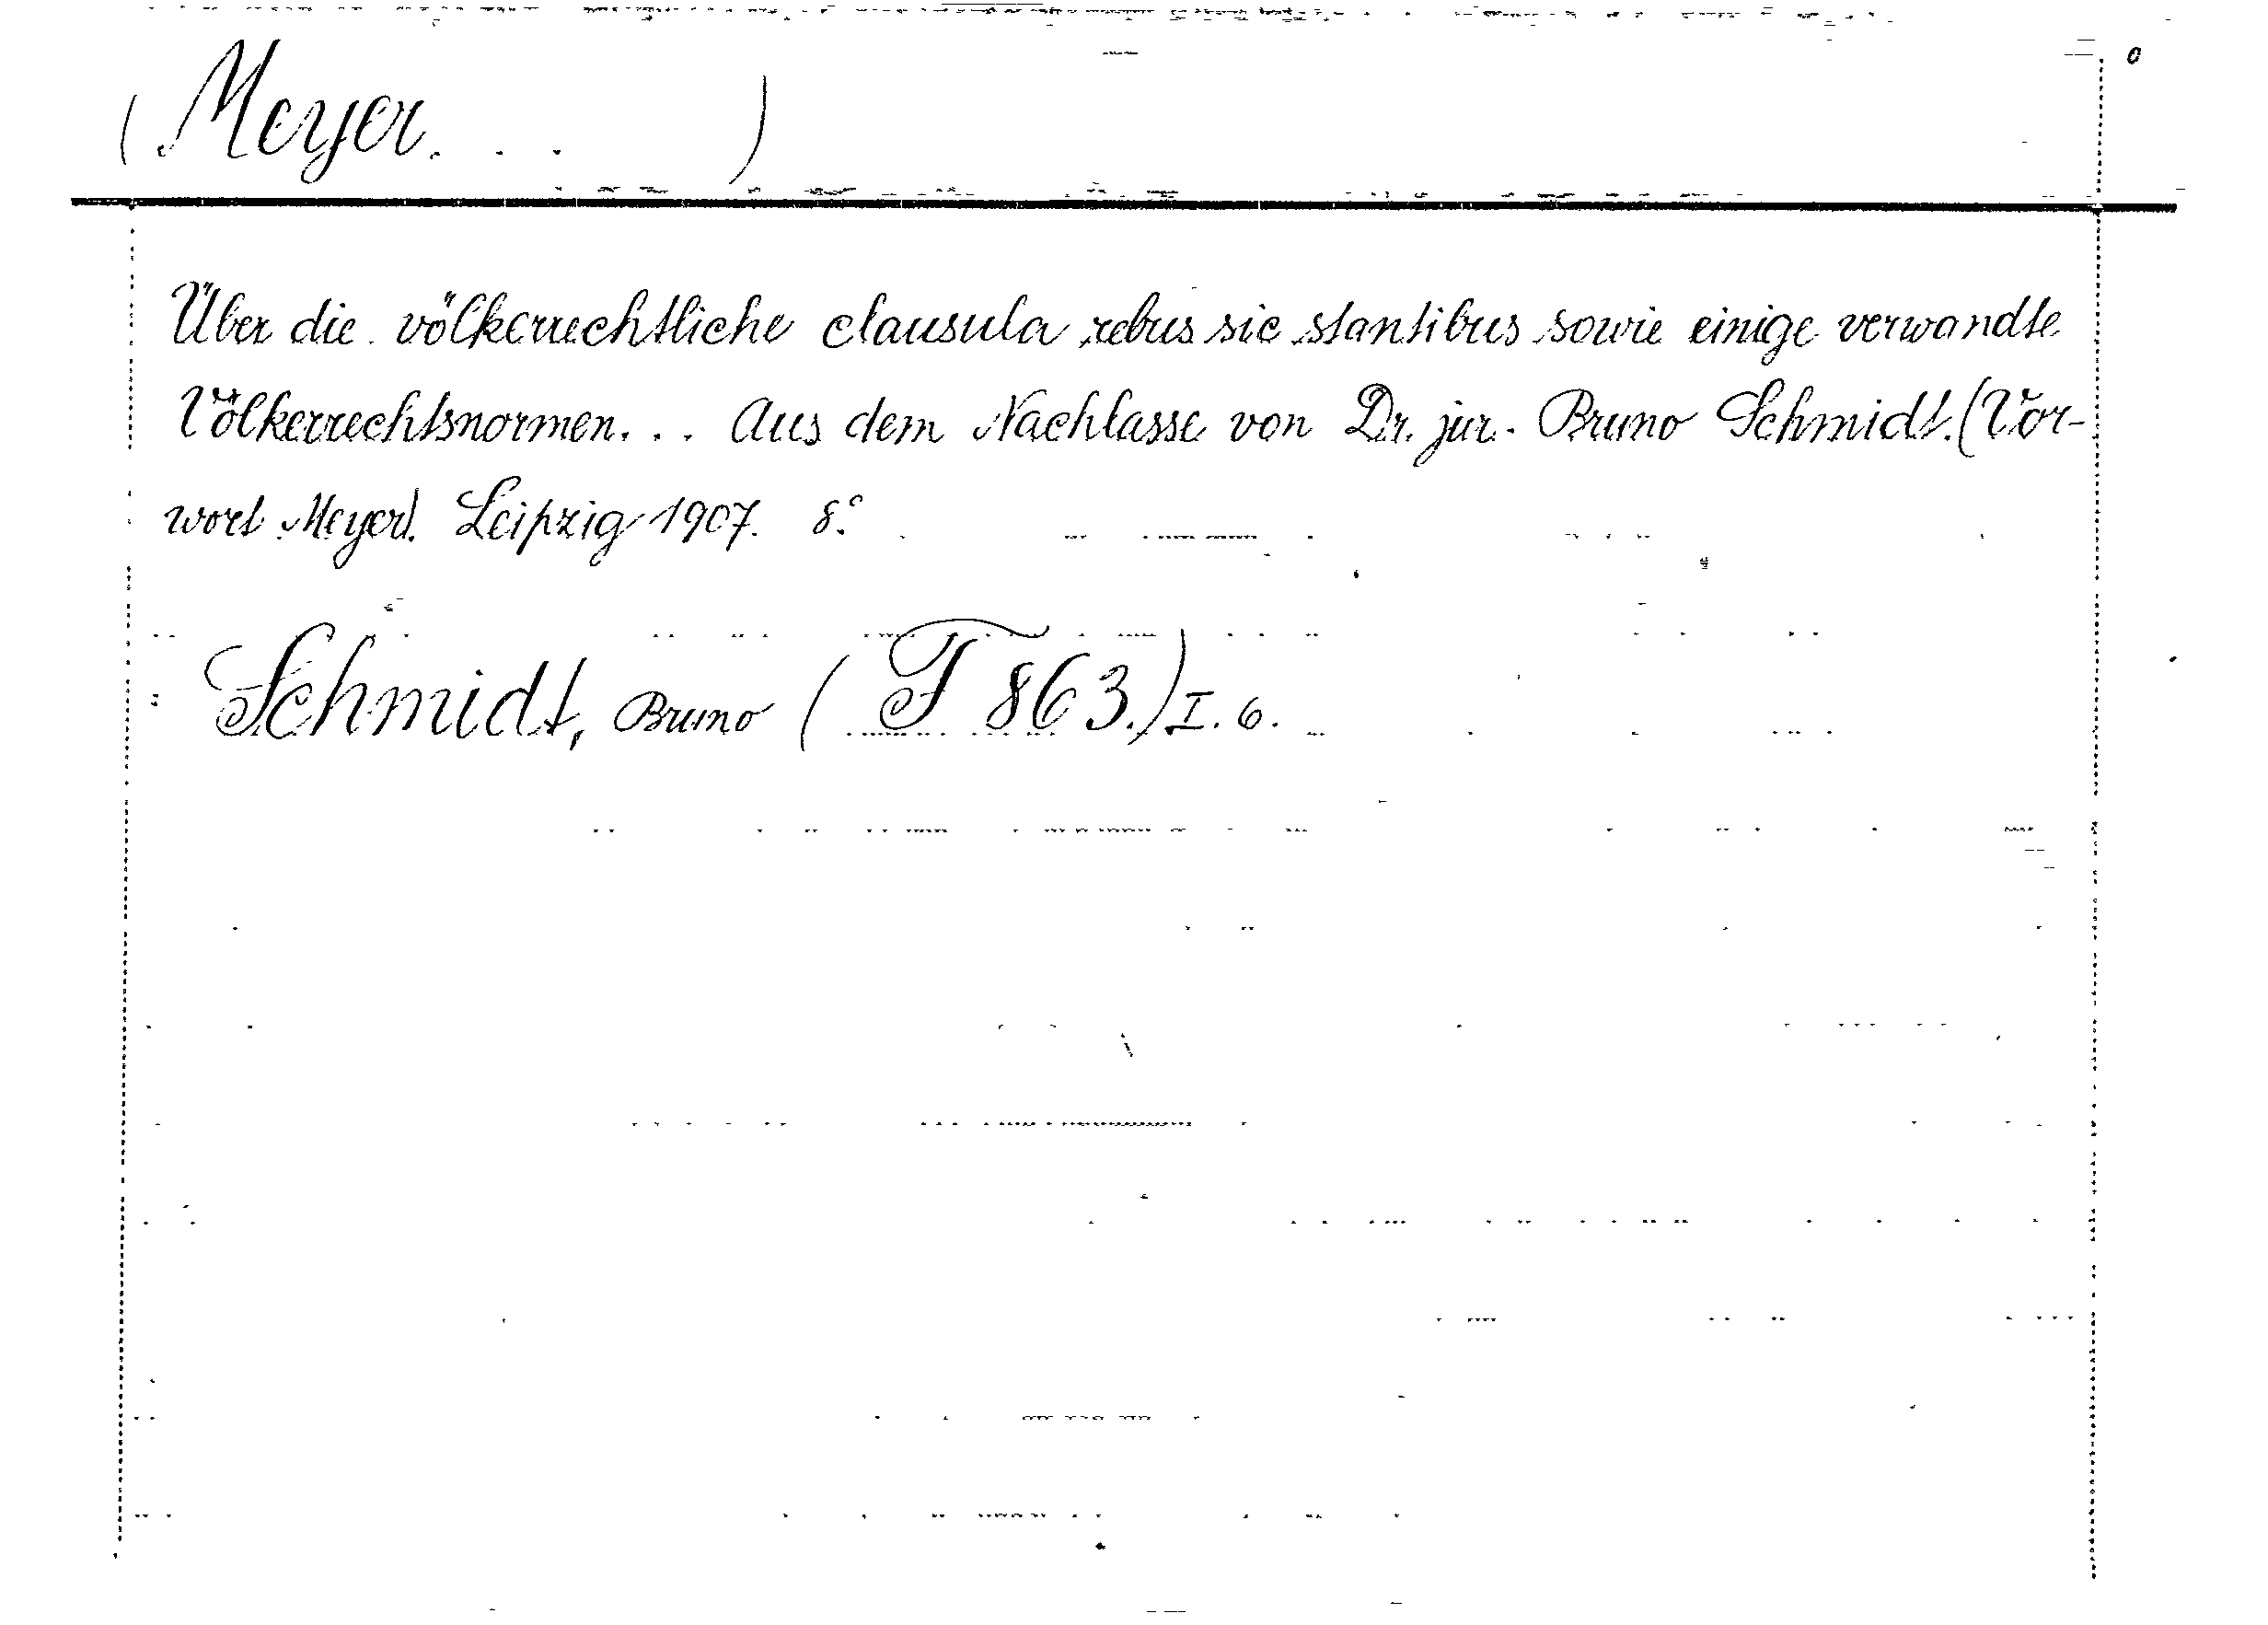 (Meyer. . . )
Über die völkerrechtliche clausula rebus sic stantibus sowie einige verwandte
Völkerrechtsnormen. . . Aus dem Nachlasse von Dr. jur. Bruno Schmidt. (Vor-
wort Meyer). Leipzig 1907. 8°.
Schmidt, Bruno (F 863.) I. 6.